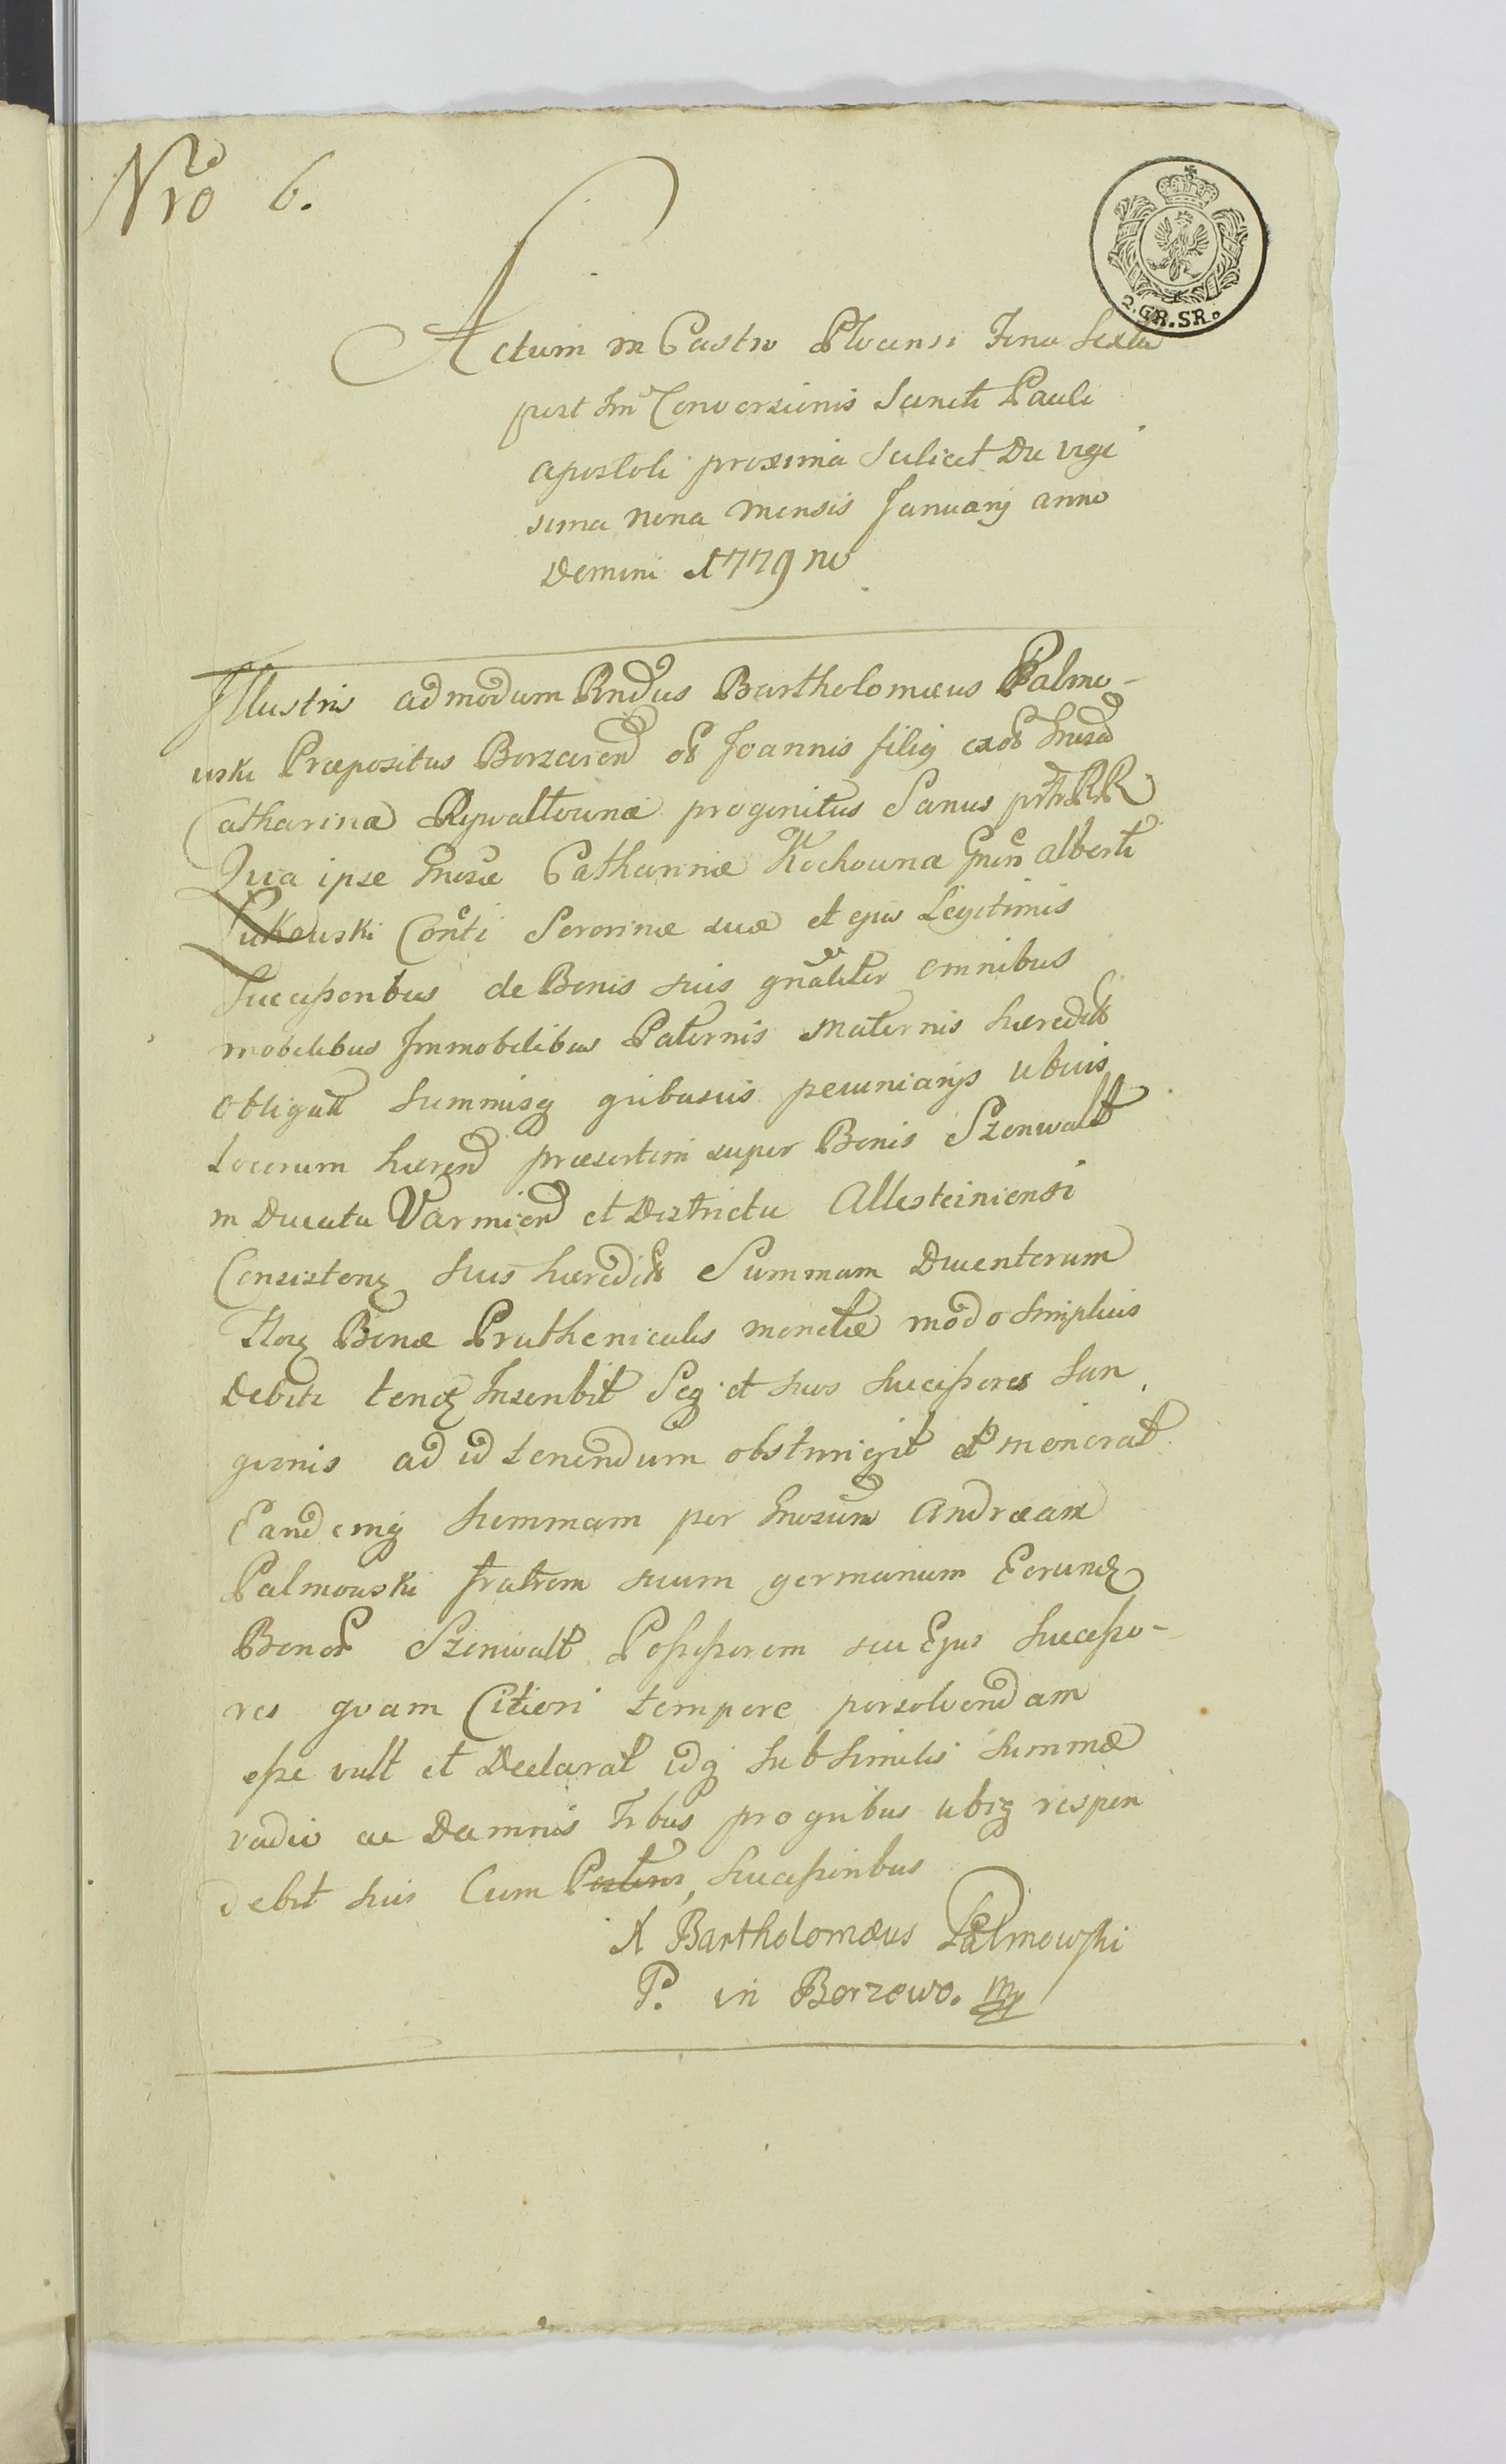 Nro 6.
2.GR.SR.
Actum in Castro Plocensi Feria Sexta
post Fm Conversionis Sancti Pauli
apostoli proxima Scilicet Die vige
sima nona Mensis Januarij anno
Domini 1779no
Illustris admodum Rndus Bartholomæus Palmo-
wski Præpositus Borzeviend Joannis filig Gnosa
Catharina Rywaltowna progenitus Sanus RR
Quia ipse Gnosæ Catharinæ Kochowna Gnsi alberti
Lukowski Conti Sororinæ suæ et ejus Legitimis
Successoribus de Bonis suis gnaliter omnibus
mobilibus Immobilibus Paternis Maternis hæredit
obligatt Summisq gvibusvis pecuniarijs ubivis
Locorum hæren præsertim super Bonis Szenwalt
in Ducatu Varmien et Districtu Allesteiniensi
Consisten suis hæredit Summam Ducentorum
Bonæ Pruthenicalis monetæ modo Simplicis
Debiti Inscribit Seq et suos Successores San
gvinis ad id tenendum obstringit et
Eandemq Summam per Gnosum Andræam
Palmowski fratrem suum germanum Eorund
Bonor Szenwalt Possessorem seu Ejus Successo-
res qvam Citiori tempore persolvendam
esse vult et Declarat idq Sub Similis Summæ
vadio ac Damnis Trbus pro gvibus ubiq respon
debit suis Cum Successoribus
X Bartholomæus Palmowski
P. in Borzewo. mp